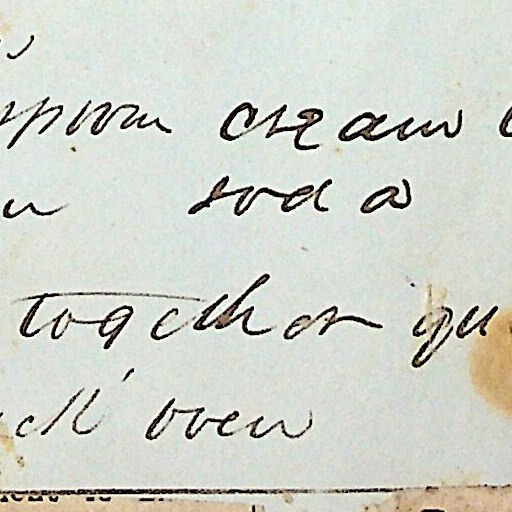 spoon cream
soda
together qu
ck oven